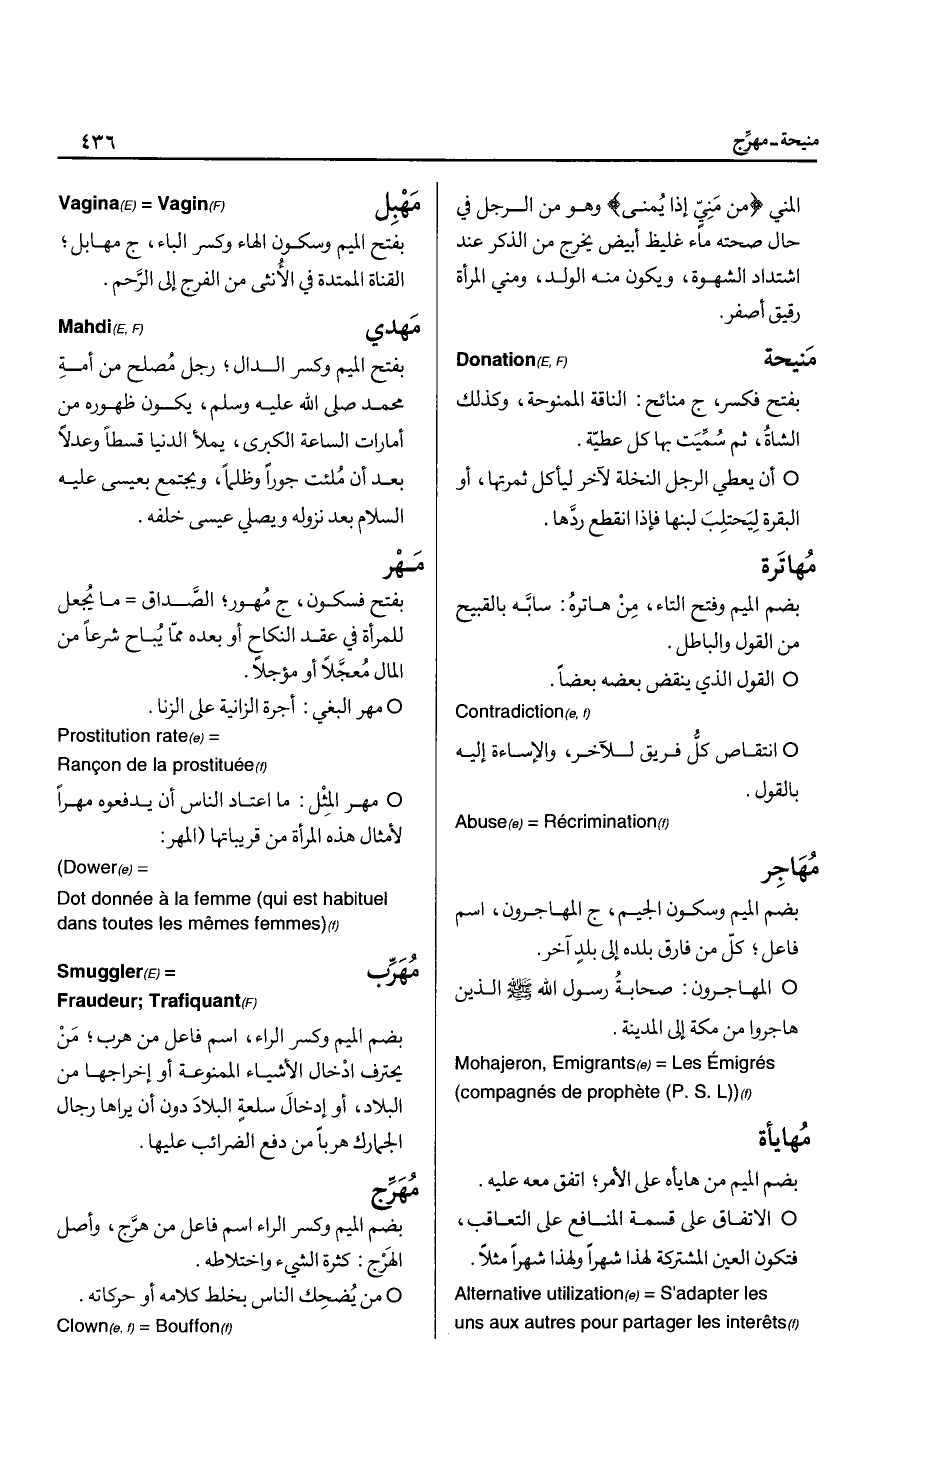 منيحة ـ مهرِّج
٤٣٦
المني ﴿من مَنِيّ إذا يُمنـى﴾ وهـو من الـرجل في
حال صحته ماء غليظ أبيض يخرج من الذكر عند
اشتداد الشهوة، ويكون منه الولد، ومني المرأة
رقيق أصفر.
مَنيحة Donation(E, F)
بفتح فكسر، ج منائح: الناقة الممنوحة، وكذلك
الشاةُ، ثم سُمِّيَت بها كل عطيّة.
O أن يعطي الرجل النخلة لآخر ليأكل ثمرتها، أو
البقرة لِيَحتلِبَ لبنها فإذا انقطع ردَّها.
مُهاتَرة
بضم الميم وفتح التاء، مِنْ هـاترهُ: سابَّه بالقبيح
من القول والباطل.
O القول الذي ينقض بعضه بعضاً.
Contradiction(e, f)
O انتقـاص كلُّ فـريق لـلآخـر، والإسـاءة إليـه
بالقول.
Abuse(e) = Récrimination(f)
مُهَاجِر
بضم الميم وسكـون الجيـم، ج المهـاجـرون، اسم
فاعل؛ كلّ من فارق بلده إلى بلدٍ آخر.
O المهـاجـرون: صحـابـةُ رسـول الله ﷺ الـذين
هاجروا من مكة إلى المدينة.
Mohajeron, Emigrants(e) = Les Émigrés
(compagnés de prophète (P. S. L))(f)
مُهايأة
بضم الميم من هايأه على الأمر؛ اتفق معه عليه.
O الاتفـاق على قسمـة المنـافع على التعـاقب،
فتكون العين المشتركة لهذا شهراً ولهذا شهراً مثلاً.
Alternative utilization(e) = S'adapter les
uns aux autres pour partager les interêts(f)
مَهْبِل Vagina(E) = Vagin(F)
بفتح الميم وسكـون الهاء وكسر الباء، ج مهـابل؛
القناة الممتدة في الأُنثى من الفرج إلى الرَّحم.
مَهدي Mahdi(E, F)
بفتح الميم وكسر الـدال؛ رجل مُصلح من أمـةِ
محمـد صلى الله عليـه وسلم، يكـون ظهـوره من
أمارات الساعة الكبرى، يملأ الدنيا قسطاً وعدلاً
بعـد أن مُلئت جوراً وظلماً، ويجتمع بعيسى عليـه
السلام بعد نزوله ويصلي عيسى خلفه.
مَـهْر
بفتح فسكـون، ج مُهـور؛ الصَّـداق = مـا يُجعل
للمرأة في عقـد النكاح أو بعده ممّا يُبـاح شرعاً من
المال مُعجَّلاً أو مؤجلاً.
O مهر البغي: أجرة الزانية على الزنا.
Prostitution rate(e) =
Rançon de la prostituée(f)
O مهـر المِثْل: ما اعتـاد الناس أن يـدفعوه مهـراً
لأمثال هذه المرأة من قريباتها (المهر:
(Dower(e) =
Dot donnée à la femme (qui est habituel
dans toutes les mêmes femmes)(f)
مُهَرِّب Smuggler(E) =
Fraudeur; Trafiquant(F)
بضم الميم وكسر الراء، اسم فاعل من هرب؛ مَنْ
يحترف ادْخال الأشياء الممنوعـة أو إخراجهـا من
البلاد، أو إدخالَ سلعةٍ البلادَ دون أن يراها رجال
الجمارك هرباً من دفع الضرائب عليها.
مُهَرِّج
بضم الميم وكسر الراء اسم فاعل من هرَّج، وأصل
الهَرْج: كثرة الشيء واختلاطه.
O من يُضحِك الناس بخلط كلامه أو حركاته.
Clown(e, f) = Bouffon(f)